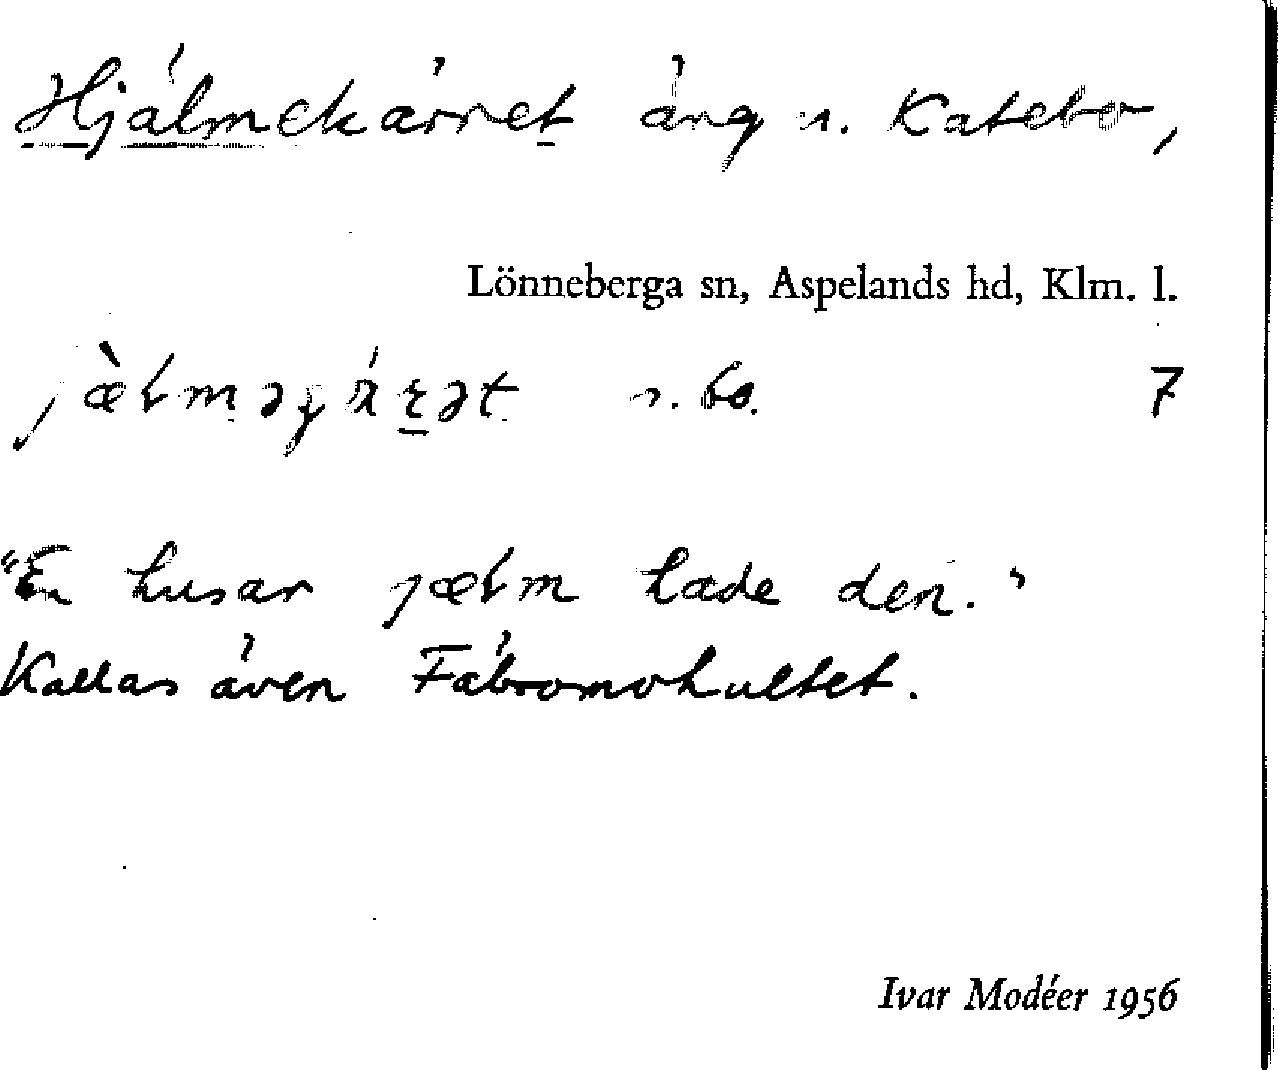 Hjälmekärret äng n. Katebo,
Lönneberga sn, Aspelands hd, Klm. l.
n. bo. 7
"En husar jælm hade den."
Kallas även Fäbromohultet.
Ivar Modéer 1956